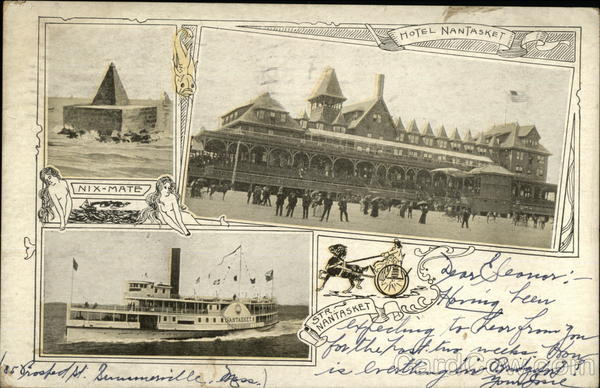 HOTEL NANTASKET
NIX-MATE
STR.
NANTASKET
NANTASKET
Dear Eleanor:-
Having been
expecting to hear from you
for the past two weeks How
is everything in
Josie
(35 Prospect St. Summerville, Mass.)
CardCow.com